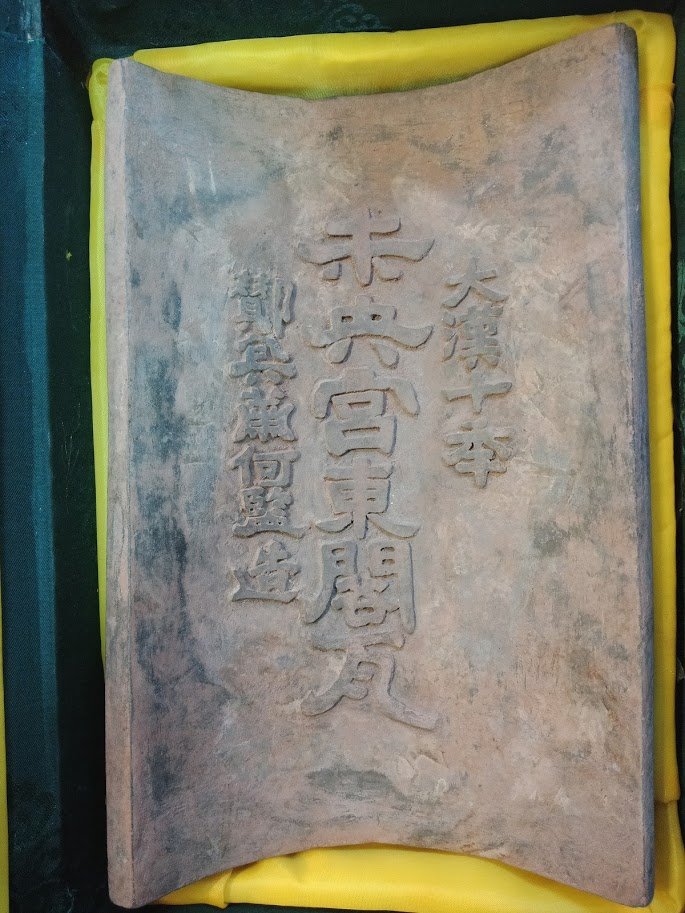 大漢十年
未央宮東閣瓦
酇侯蕭何監造